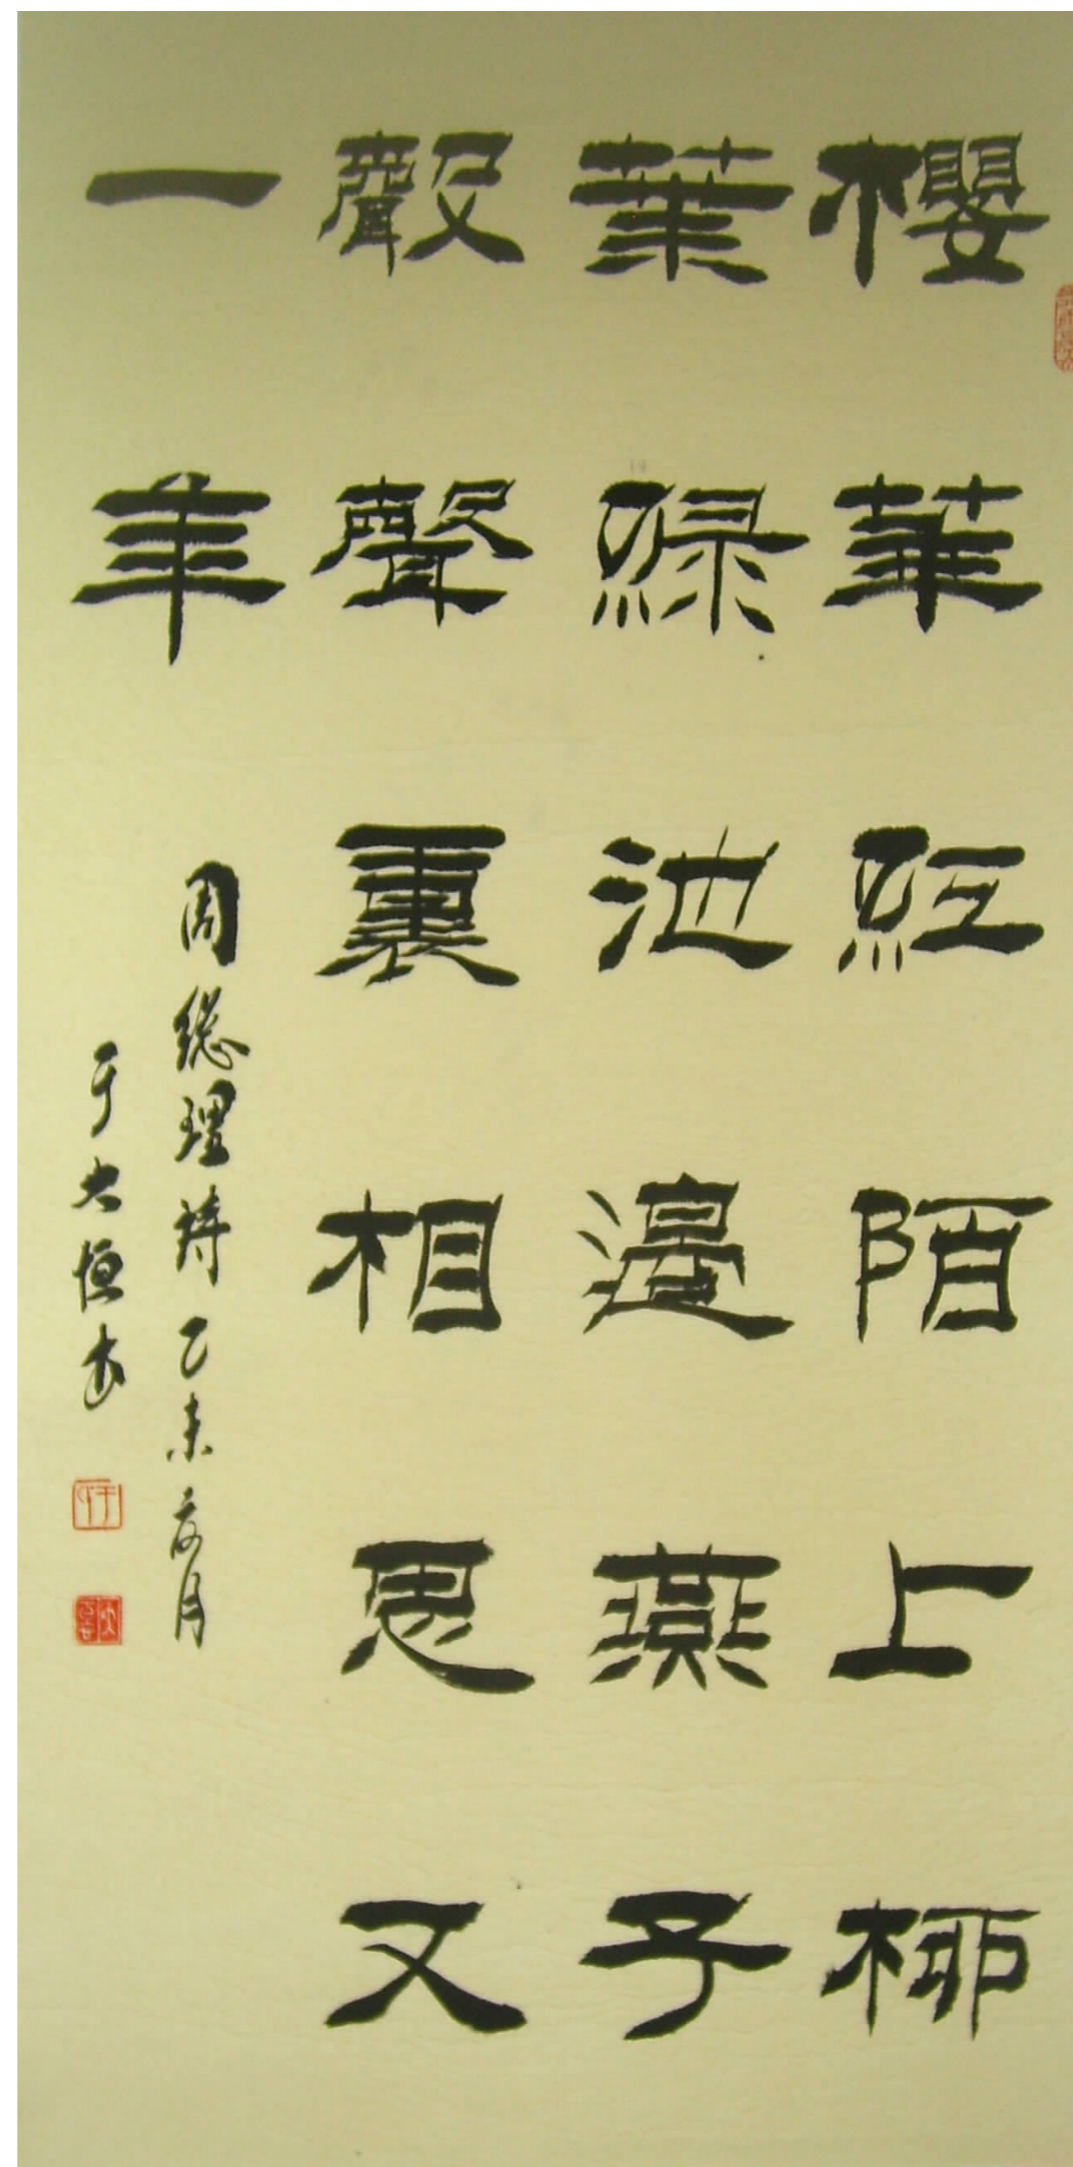 櫻華紅陌上柳
葉綠池邊燕子
聲聲裏相思又
一年
周總理詩乙未夏月
于大恒书